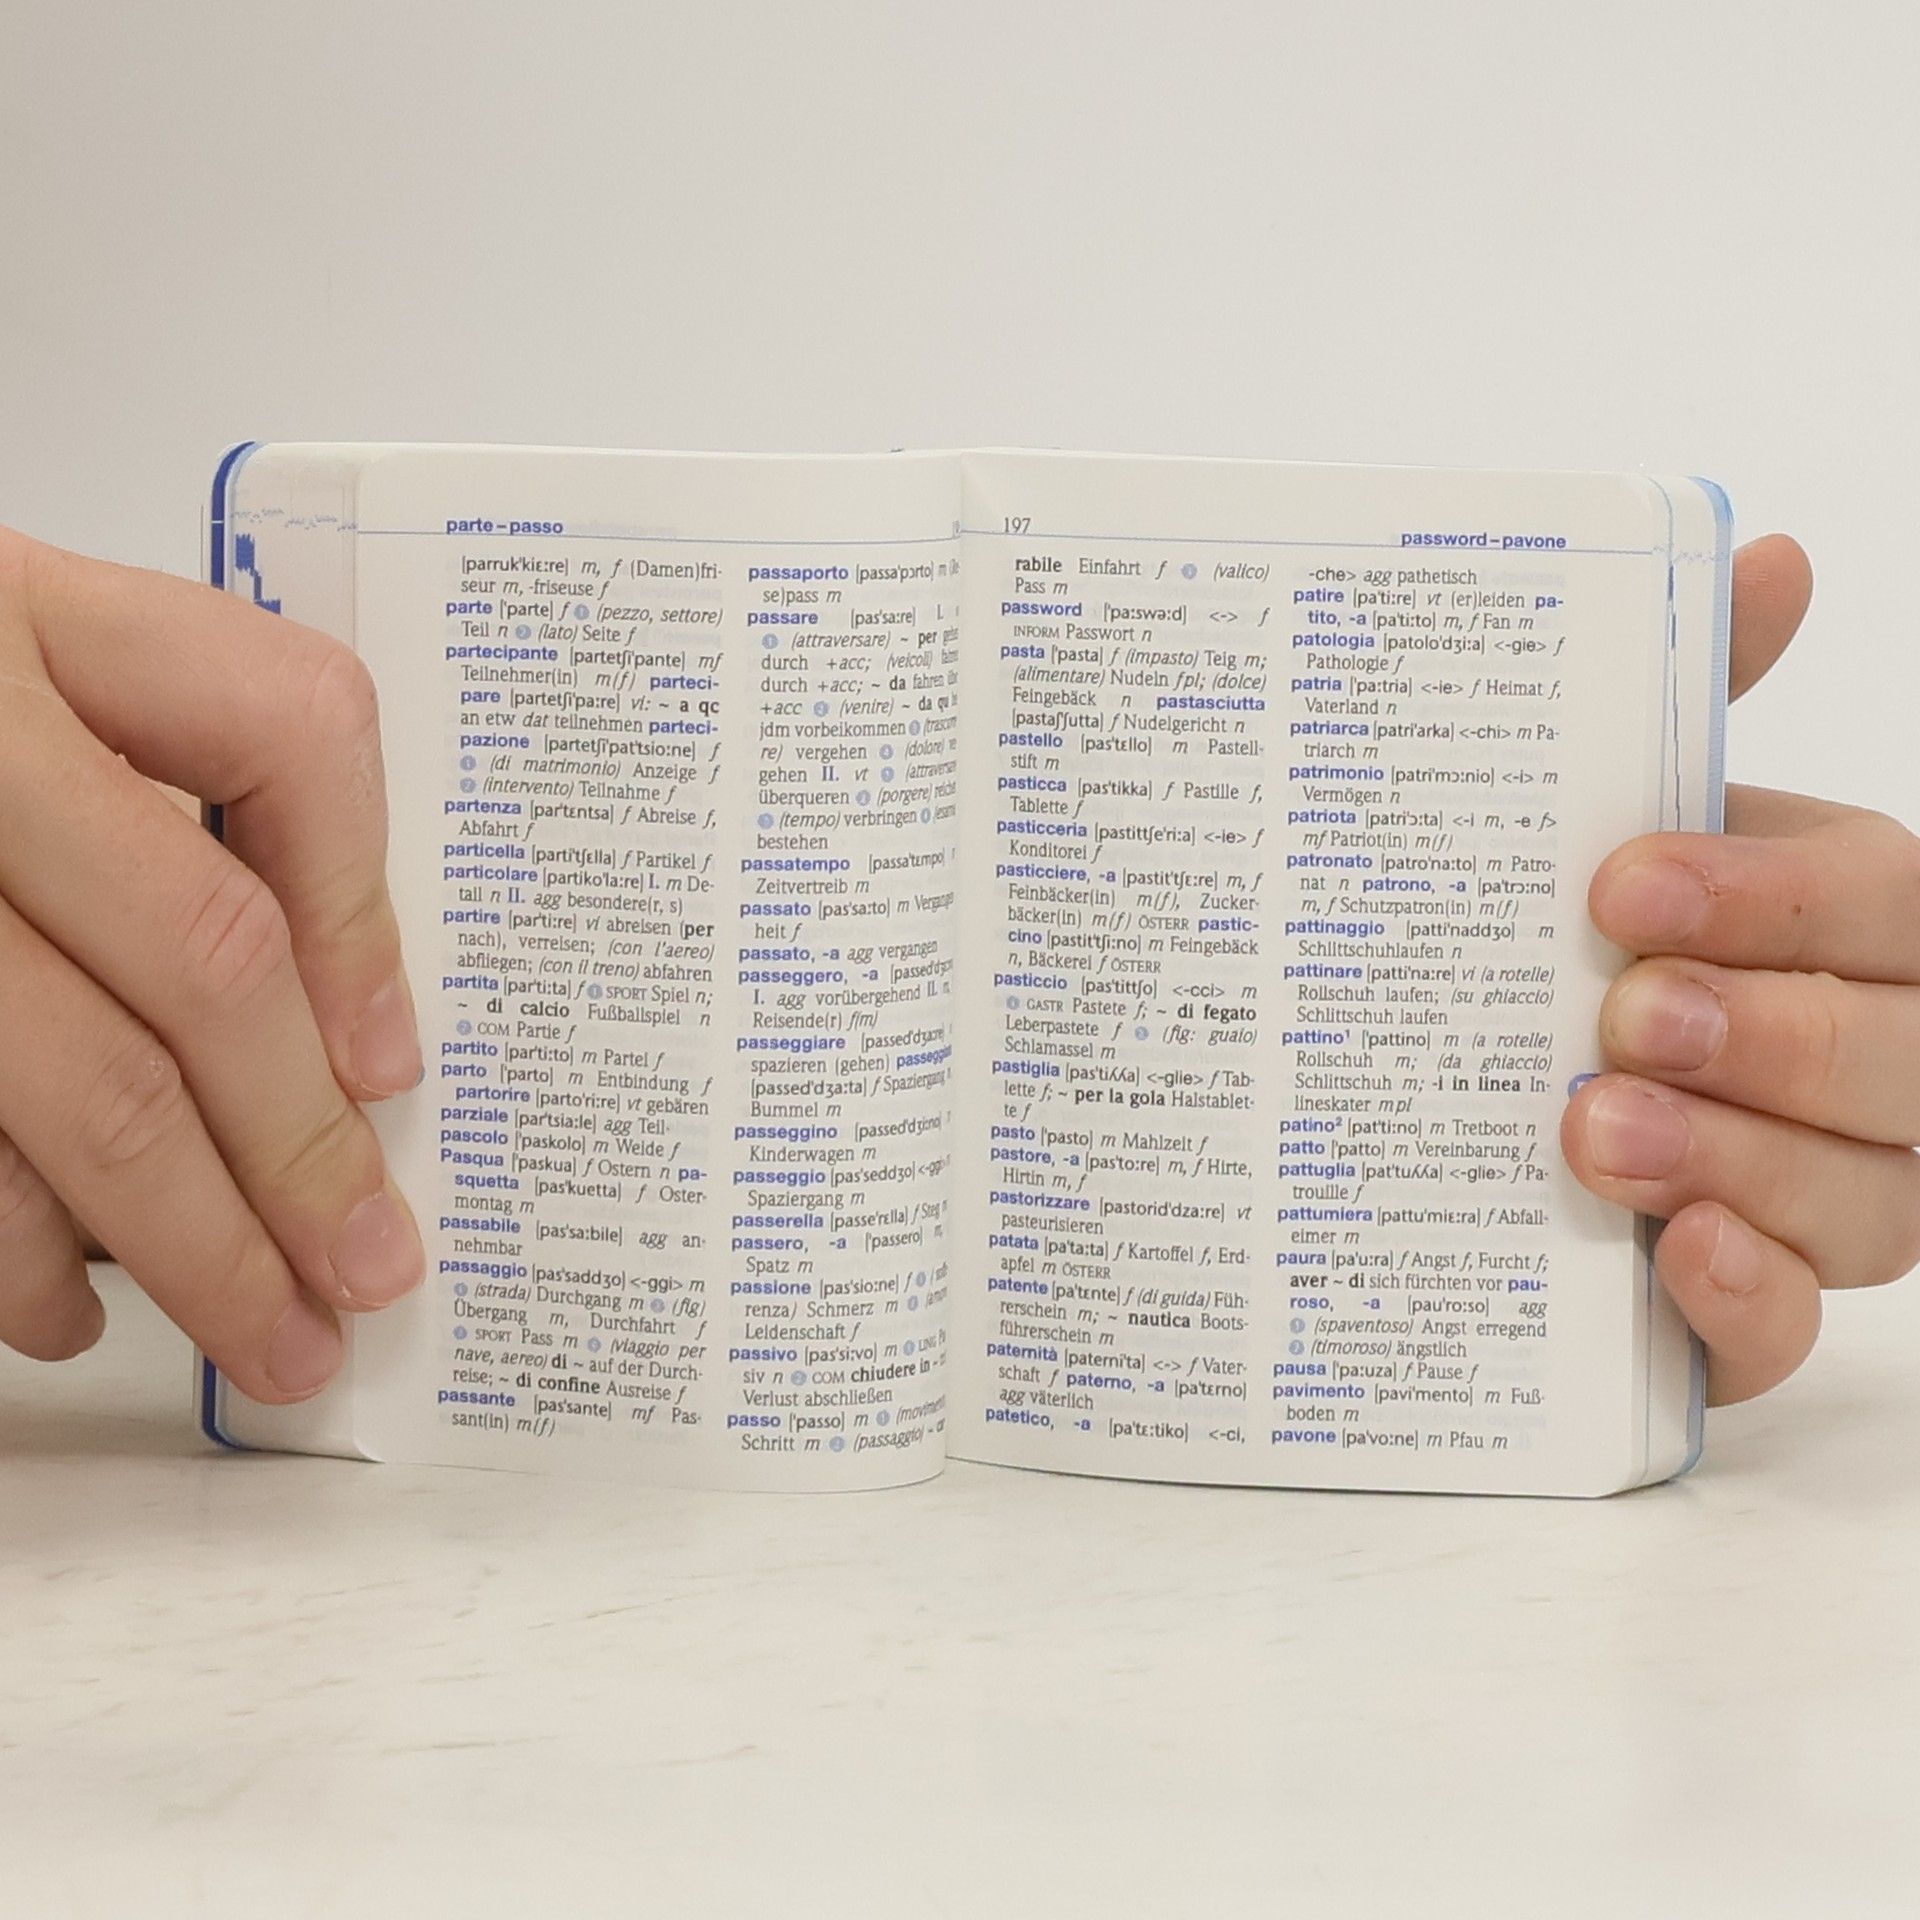 parte–passo
[parruk'kiɛ:re] m, f (Damen)fri-
seur m, -friseuse f
parte ['parte] f 1 (pezzo, settore)
Teil n 2 (lato) Seite f
partecipante [partetʃi'pante] mf
Teilnehmer(in) m(f) parteci-
pare [partetʃi'pa:re] vi: ~ a qc
an etw dat teilnehmen parteci-
pazione [partetʃipat'tsio:ne] f
1 (di matrimonio) Anzeige f
2 (intervento) Teilnahme f
partenza [par'tɛntsa] f Abreise f,
Abfahrt f
particella [parti'tʃɛlla] f Partikel f
particolare [partiko'la:re] I. m De-
tail n II. agg besondere(r, s)
partire [par'ti:re] vi abreisen (per
nach), verreisen; (con l'aereo)
abfliegen; (con il treno) abfahren
partita [par'ti:ta] f 1 SPORT Spiel n;
~ di calcio Fußballspiel n
2 COM Partie f
partito [par'ti:to] m Partei f
parto ['parto] m Entbindung f
partorire [parto'ri:re] vt gebären
parziale [par'tsia:le] agg Teil-
pascolo ['paskolo] m Weide f
Pasqua ['paskua] f Ostern n pa-
squetta [pas'kuetta] f Oster-
montag m
passabile [pas'sa:bile] agg an-
nehmbar
passaggio [pas'saddʒo] <-ggi> m
1 (strada) Durchgang m 2 (fig)
Übergang m, Durchfahrt f
3 SPORT Pass m 4 (viaggio per
nave, aereo) di ~ auf der Durch-
reise; ~ di confine Ausreise f
passante [pas'sante] mf Pas-
sant(in) m(f)
passaporto [passa'pɔrto] m
se)pass m
passare [pas'sa:re] I.
1 (attraversare) ~ per
durch +acc; (veicoli)
durch +acc; ~ da fahren
+acc 2 (venire) ~ da
jdm vorbeikommen 3
re) vergehen 4 (dolore)
gehen II. vt 1
überqueren 2 (porgere)
3 (tempo) verbringen 4
bestehen
passatempo [passa'tɛmpo]
Zeitvertreib m
passato [pas'sa:to] m
heit f
passato, -a agg vergangen
passeggero, -a
I. agg vorübergehend II. n,
Reisende(r) f(m)
passeggiare
spazieren (gehen)
[passed'dʒa:ta] f Spaziergang
Bummel m
passeggino
Kinderwagen m
passeggio [pas'seddʒo]
Spaziergang m
passerella [passe'rɛlla] f Steg
passero, -a ['passero]
Spatz m
passione [pas'sio:ne] f 1
renza) Schmerz m 2
Leidenschaft f
passivo [pas'si:vo] m 1 LING
siv n 2 COM chiudere in ~
Verlust abschließen
passo ['passo] m 1
Schritt m 2 (passaggio) ~
197
password–pavone
rabile Einfahrt f 3 (valico)
Pass m
password ['pa:swə:d] <-> f
INFORM Passwort n
pasta ['pasta] f (impasto) Teig m;
(alimentare) Nudeln fpl; (dolce)
Feingebäck n pastasciutta
[pastaʃ'ʃutta] f Nudelgericht n
pastello [pas'tɛllo] m Pastell-
stift m
pasticca [pas'tikka] f Pastille f,
Tablette f
pasticceria [pastittʃe'ri:a] <-ie> f
Konditorei f
pasticciere, -a [pastit'tʃɛ:re] m, f
Feinbäcker(in) m(f), Zucker-
bäcker(in) m(f) ÖSTERR pastic-
cino [pastit'tʃi:no] m Feingebäck
n, Bäckerei f ÖSTERR
pasticcio [pas'tittʃo] <-cci> m
1 GASTR Pastete f; ~ di fegato
Leberpastete f 2 (fig: guaio)
Schlamassel m
pastiglia [pas'tiʎʎa] <-glie> f Tab-
lette f; ~ per la gola Halstablet-
te f
pasto ['pasto] m Mahlzeit f
pastore, -a [pas'to:re] m, f Hirte,
Hirtin m, f
pastorizzare [pastorid'dza:re] vt
pasteurisieren
patata [pa'ta:ta] f Kartoffel f, Erd-
apfel m ÖSTERR
patente [pa'tɛnte] f (di guida) Füh-
rerschein m; ~ nautica Boots-
führerschein m
paternità [paterni'ta] <-> f Vater-
schaft f paterno, -a [pa'tɛrno]
agg väterlich
patetico, -a [pa'tɛ:tiko] <-ci,
-che> agg pathetisch
patire [pa'ti:re] vt (er)leiden pa-
tito, -a [pa'ti:to] m, f Fan m
patologia [patolo'dʒi:a] <-gie> f
Pathologie f
patria ['pa:tria] <-ie> f Heimat f,
Vaterland n
patriarca [patri'arka] <-chi> m Pa-
triarch m
patrimonio [patri'mɔ:nio] <-i> m
Vermögen n
patriota [patri'ɔ:ta] <-i m, -e f>
mf Patriot(in) m(f)
patronato [patro'na:to] m Patro-
nat n patrono, -a [pa'trɔ:no]
m, f Schutzpatron(in) m(f)
pattinaggio [patti'naddʒo] m
Schlittschuhlaufen n
pattinare [patti'na:re] vi (a rotelle)
Rollschuh laufen; (su ghiaccio)
Schlittschuh laufen
pattino¹ ['pattino] m (a rotelle)
Rollschuh m; (da ghiaccio)
Schlittschuh m; -i in linea In-
lineskater mpl
patino² [pat'ti:no] m Tretboot n
patto ['patto] m Vereinbarung f
pattuglia [pat'tuʎʎa] <-glie> f Pa-
trouille f
pattumiera [pattu'miɛ:ra] f Abfall-
eimer m
paura [pa'u:ra] f Angst f, Furcht f;
aver ~ di sich fürchten vor pau-
roso, -a [pau'ro:so] agg
1 (spaventoso) Angst erregend
2 (timoroso) ängstlich
pausa ['pa:uza] f Pause f
pavimento [pavi'mento] m Fuß-
boden m
pavone [pa'vo:ne] m Pfau m